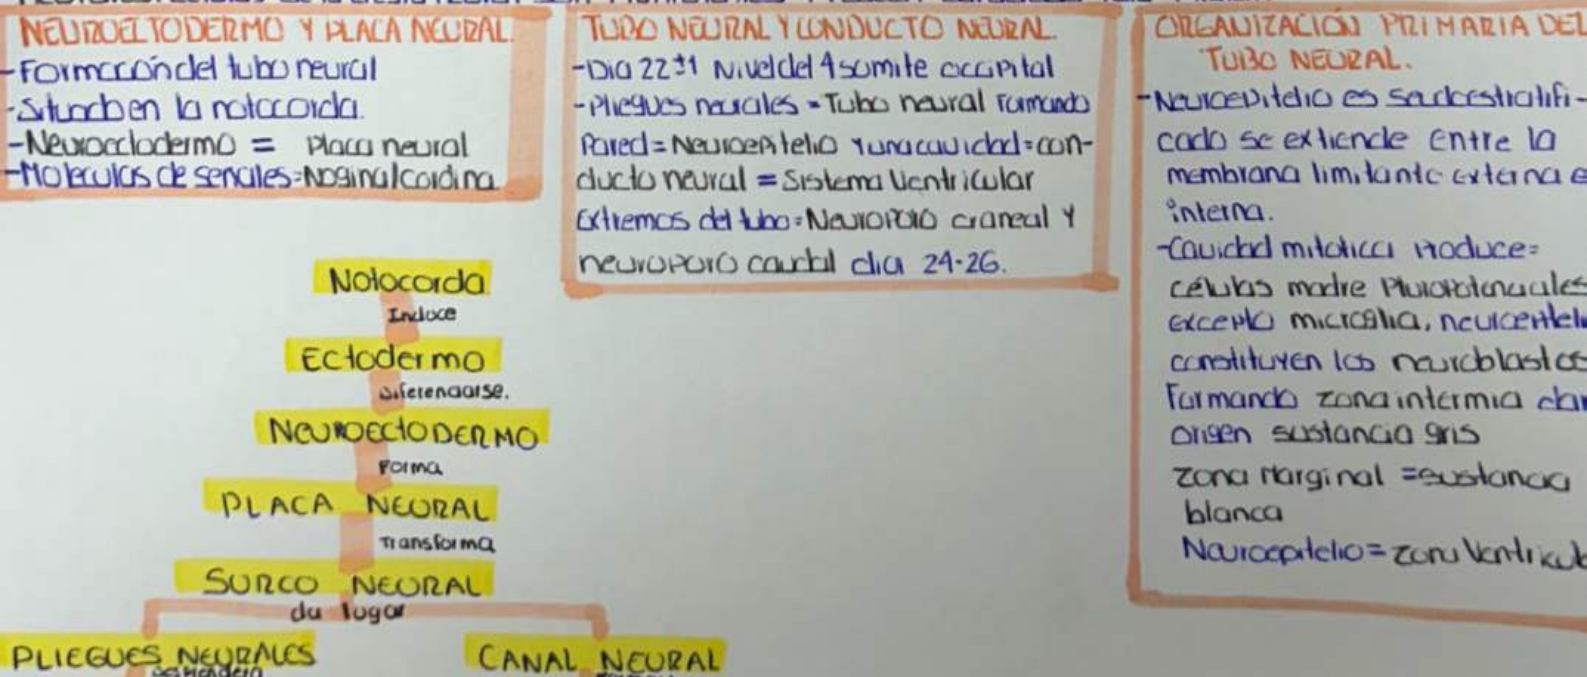 NEUROECTODERMO Y PLACA NEURAL.
-Formación del tubo neural
-Situado en la notocorda.
-Neuroectodermo = Placa neural
-Moleculas de señales=Nogina/cordina
TUBO NEURAL Y CONDUCTO NEURAL.
-Dia 22±1 Nivel del 4 somite occipital
-Pliegues neurales = Tubo neural Formando
Pared=Neuroepitelio Y una cavidad=con-
ducto neural = Sistema Ventricular
Extremos del tubo=Neuroporo craneal Y
neuroporo caudal dia 24-26.
ORGANIZACIÓN PRIMARIA DEL
TUBO NEURAL.
-Neuroepitelio es
cado se extiende Entre la
membrana limitante externa e
interna.
-Cavidad mitotica Produce=
células madre Pluripotenciales
excepto microglia,
constituyen los neuroblastos
Formando zona intermia
origen sustancia gris
zona Marginal =sustancia
blanca
Neuroepitelio=zona
Notocorda
Induce
Ectodermo
Diferenciarse.
NEUROECTODERMO
Forma
PLACA NEURAL
Transforma
SURCO NEURAL
da lugar
PLIEGUES NEURALES
CANAL NEURAL